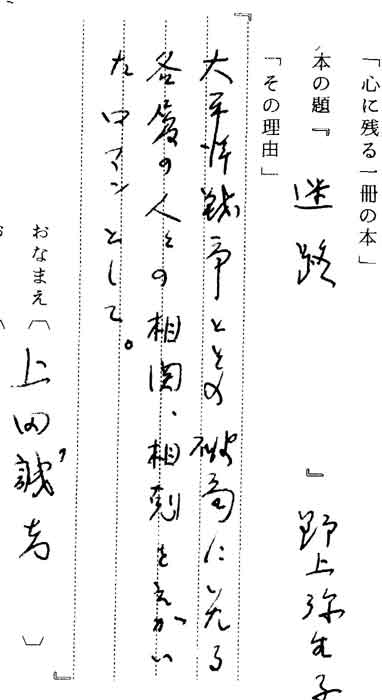 「心に残る一冊の本」
本の題『迷路』野上弥生子
「その理由」
『大平洋戦争とその破局にいたる
各層の人々の相関、相剋をえがい
たロマンとして。』
おなまえ〔上田誠吉〕